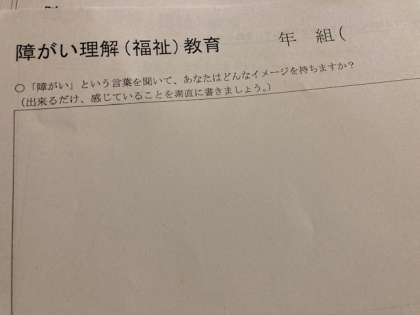 障がい理解(福祉)教育　　年　組(
○「障がい」という言葉を聞いて、あなたはどんなイメージを持ちますか?
(出来るだけ、感じていることを素直に書きましょう。)